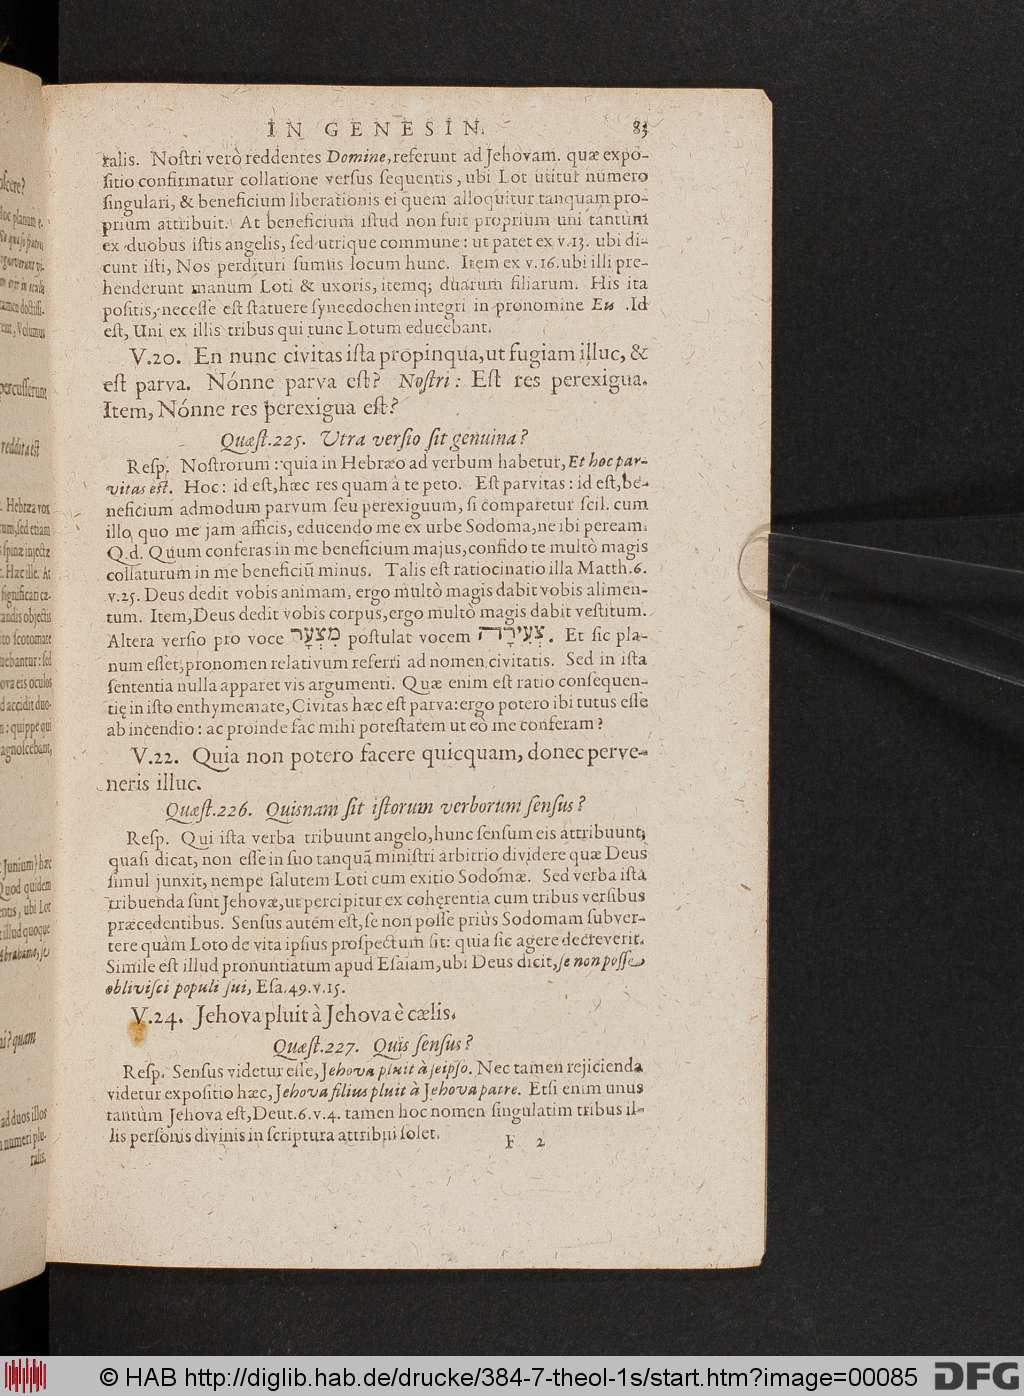 IN GENESIN. 83
ralis. Noſtri verò reddentes Domine, referunt ad Jehovam. quæ expo-
ſitio confirmatur collatione verſus ſequentis, ubi Lot utitur numero
ſingulari, & beneficium liberationis ei quem alloquitur tanquam pro-
prium attribuit. At beneficium iſtud non fuit proprium uni tantùm
ex duobus iſtis angelis, ſed utrique commune: ut patet ex v.13. ubi di-
cunt iſti, Nos perdituri ſumus locum hunc. Item ex v.16. ubi illi pre-
henderunt manum Loti & uxoris, itemq; duarum filiarum. His ita
poſitis, neceſſe eſt ſtatuere ſynecdochen integri in pronomine Eus. Id
eſt, Uni ex illis tribus qui tunc Lotum educebant.
V.20. En nunc civitas iſta propinqua, ut fugiam illuc, &
eſt parva. Nónne parva eſt? Noſtri: Eſt res perexigua.
Item, Nónne res perexigua eſt?
Quæſt.225. Utra verſio ſit genuina?
Reſp. Noſtrorum: quia in Hebræo ad verbum habetur, Et hoc par-
vitas eſt. Hoc: id eſt, hæc res quam à te peto. Eſt parvitas: id eſt, be-
neficium admodum parvum ſeu perexiguum, ſi comparetur ſcil. cum
illo quo me jam afficis, educendo me ex urbe Sodoma, ne ibi peream.
Q.d. Quum conferas in me beneficium majus, confido te multò magis
collaturum in me beneficiũ minus. Talis eſt ratiocinatio illa Matth.6.
v.25. Deus dedit vobis animam, ergo multò magis dabit vobis alimen-
tum. Item, Deus dedit vobis corpus, ergo multò magis dabit veſtitum.
Altera verſio pro voce מִצְעָר poſtulat vocem צְעִירָה. Et ſic pla-
num eſſet, pronomen relativum referri ad nomen civitatis. Sed in iſta
ſententia nulla apparet vis argumenti. Quæ enim eſt ratio conſequen-
tię in iſto enthymemate, Civitas hæc eſt parva: ergo potero ibi tutus eſſe
ab incendio: ac proinde fac mihi poteſtatem ut eò me conferam?
V.22. Quia non potero facere quicquam, donec perve-
neris illuc.
Quæſt.226. Quisnam ſit iſtorum verborum ſenſus?
Reſp. Qui iſta verba tribuunt angelo, hunc ſenſum eis attribuunt;
quaſi dicat, non eſſe in ſuo tanquã miniſtri arbitrio dividere quæ Deus
ſimul junxit, nempe ſalutem Loti cum exitio Sodomæ. Sed verba iſta
tribuenda ſunt Jehovæ, ut percipitur ex cohęrentia cum tribus verſibus
præcedentibus. Senſus autem eſt, ſe non poſſe priùs Sodomam ſubver-
tere quàm Loto de vita ipſius proſpectum ſit: quia ſic agere decreverit.
Simile eſt illud pronuntiatum apud Eſaiam, ubi Deus dicit, ſe non poſſe
obliviſci populi ſui, Eſa.49.v.15.
V.24. Jehova pluit à Jehova è cælis.
Quæſt.227. Quis ſenſus?
Reſp. Senſus videtur eſſe, Jehova pluit à ſeipſo. Nec tamen rejicienda
videtur expoſitio hæc, Jehova filius pluit à Jehova patre. Etſi enim unus
tantùm Jehova eſt, Deut.6.v.4. tamen hoc nomen ſingulatim tribus il-
lis perſonis divinis in ſcriptura attribui ſolet.
F 2
© HAB http://diglib.hab.de/drucke/384-7-theol-1s/start.htm?image=00085
DFG